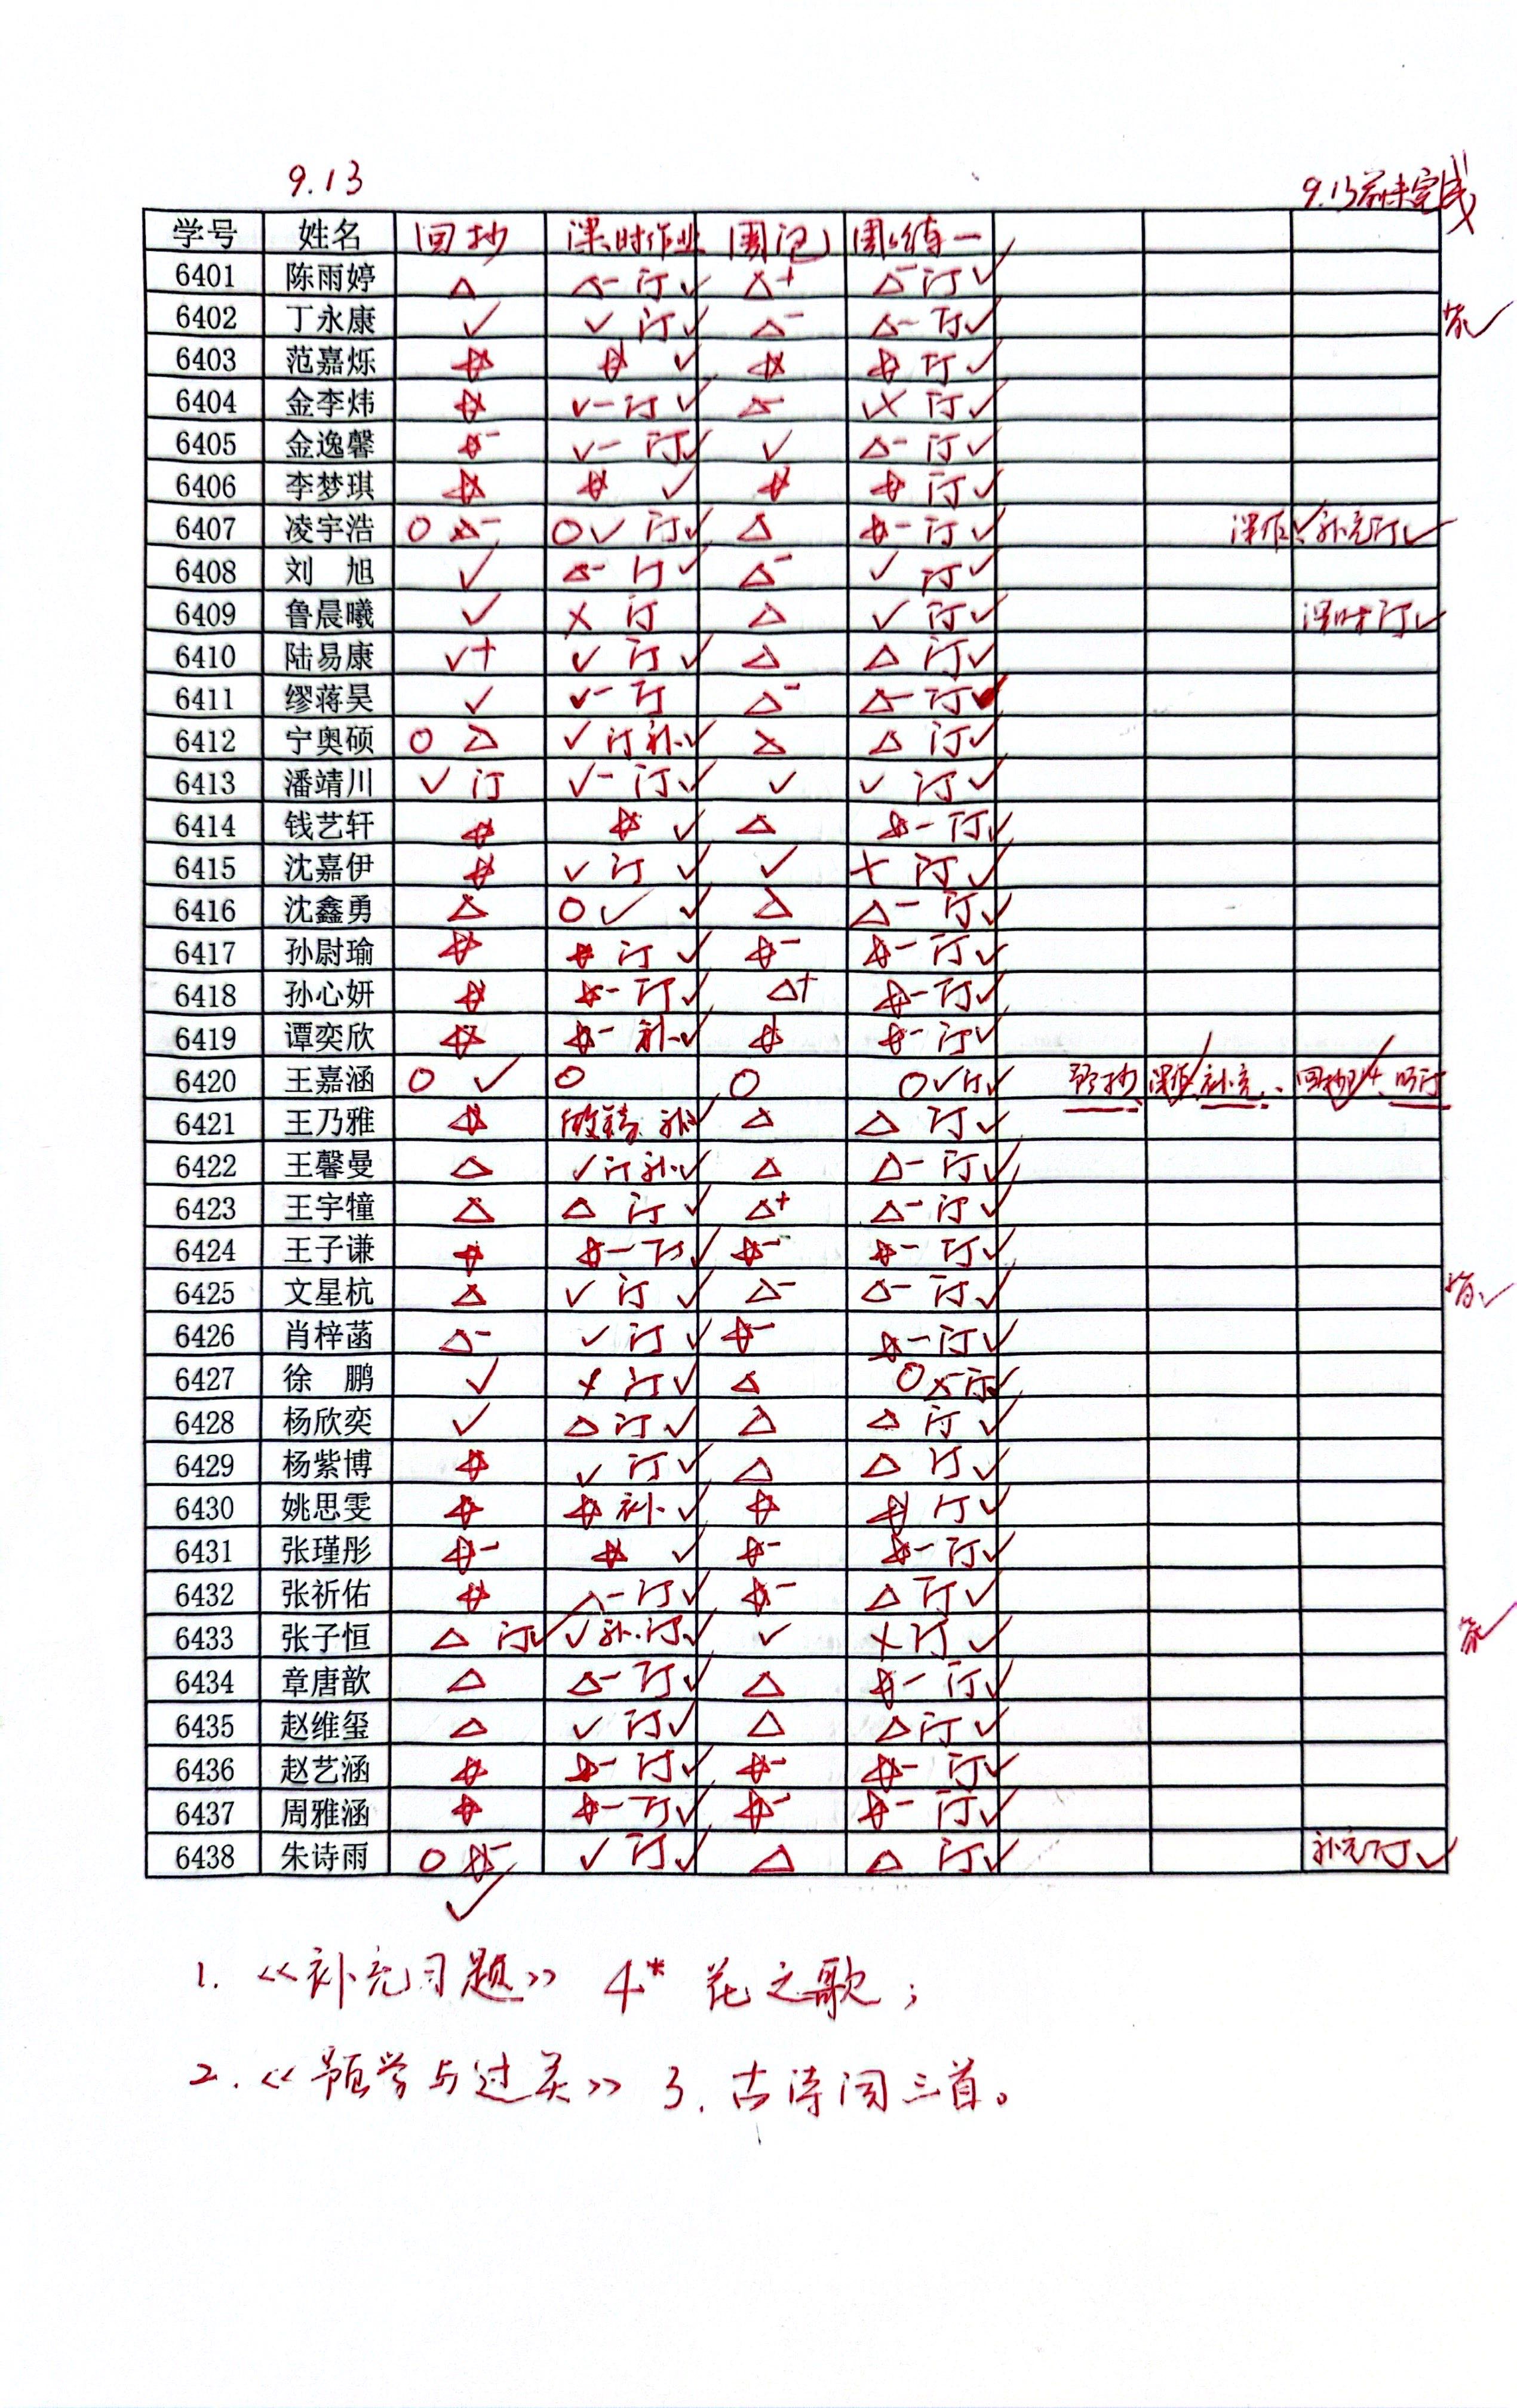 9.13
9.13前未完成
学号 姓名 回抄 课时作业 周记 周练一
6401 陈雨婷 △ △- 订✓ △+ △- 订✓
6402 丁永康 ✓ ✓ 订✓ △- △- 订✓
6403 范嘉烁 ☆ ☆ ✓ ☆ ☆ 订✓
6404 金李炜 ☆ ✓- 订✓ △- 订✓
6405 金逸馨 ☆- ✓- 订✓ ✓ △- 订✓
6406 李梦琪 ☆ ☆ ✓ ☆ ☆ 订✓
6407 凌宇浩 O △- O✓ 订✓ △ ☆- 订✓ 课作✓ 补充订✓
6408 刘 旭 ✓ △- 订✓ △- ✓ 订✓
6409 鲁晨曦 ✓ × 订 △ ✓ 订✓ 课时订✓
6410 陆易康 ✓+ ✓ 订✓ △ △ 订✓
6411 缪蒋昊 ✓ ✓- 订 △- △- 订✓
6412 宁奥硕 O △ ✓ 订补✓ △ △ 订✓
6413 潘靖川 ✓ 订 ✓- 订✓ ✓ ✓ 订✓
6414 钱艺轩 ☆ ☆ ✓ △ ☆- 订✓
6415 沈嘉伊 ☆ ✓ 订 ✓ ✓ × 订✓
6416 沈鑫勇 △ O✓ ✓ △ △- 订✓
6417 孙尉瑜 ☆ ☆ 订✓ ☆- ☆- 订✓
6418 孙心妍 ☆ ☆- 订✓ △+ ☆- 订✓
6419 谭奕欣 ☆ ☆- 补✓ ☆ ☆- 订✓
6420 王嘉涵 O ✓ O O O✓订✓ 预抄 课作✓ 补充 回抄
6421 王乃雅 ☆ 补 △ △ 订✓
6422 王馨曼 △ ✓订补✓ △ △- 订✓
6423 王宇犝 △ △ 订✓ △+ △- 订✓
6424 王子谦 ☆ ☆- 订✓ ☆- ☆- 订✓
6425 文星杭 △ ✓ 订 ✓ △- △- 订✓
6426 肖梓菡 △- ✓ 订✓ ☆- ☆- 订✓
6427 徐 鹏 ✓ × 订✓ △ O × 订✓
6428 杨欣奕 ✓ △ 订✓ △ △ 订✓
6429 杨紫博 ☆ ✓ 订✓ △ △ 订✓
6430 姚思雯 ☆ ☆ 补 ✓ ☆ ☆ 订✓
6431 张瑾彤 ☆- ☆ ✓ ☆- ☆- 订✓
6432 张祈佑 ☆ △- 订✓ ☆- △ 订✓
6433 张子恒 △ 订✓ ✓补订✓ ✓ × 订 ✓
6434 章唐歆 △ △- 订✓ △ ☆- 订✓
6435 赵维玺 △ ✓ 订✓ △ △ 订✓
6436 赵艺涵 ☆ ☆- 订✓ ☆- ☆- 订✓
6437 周雅涵 ☆ ☆- 订✓ ☆- ☆- 订✓
6438 朱诗雨 O ☆- ✓ ✓ 订✓ △ △ 订✓ 补充订✓
1. 《补充习题》 4* 花之歌；
2. 《预学与过关》 3. 古诗词三首。